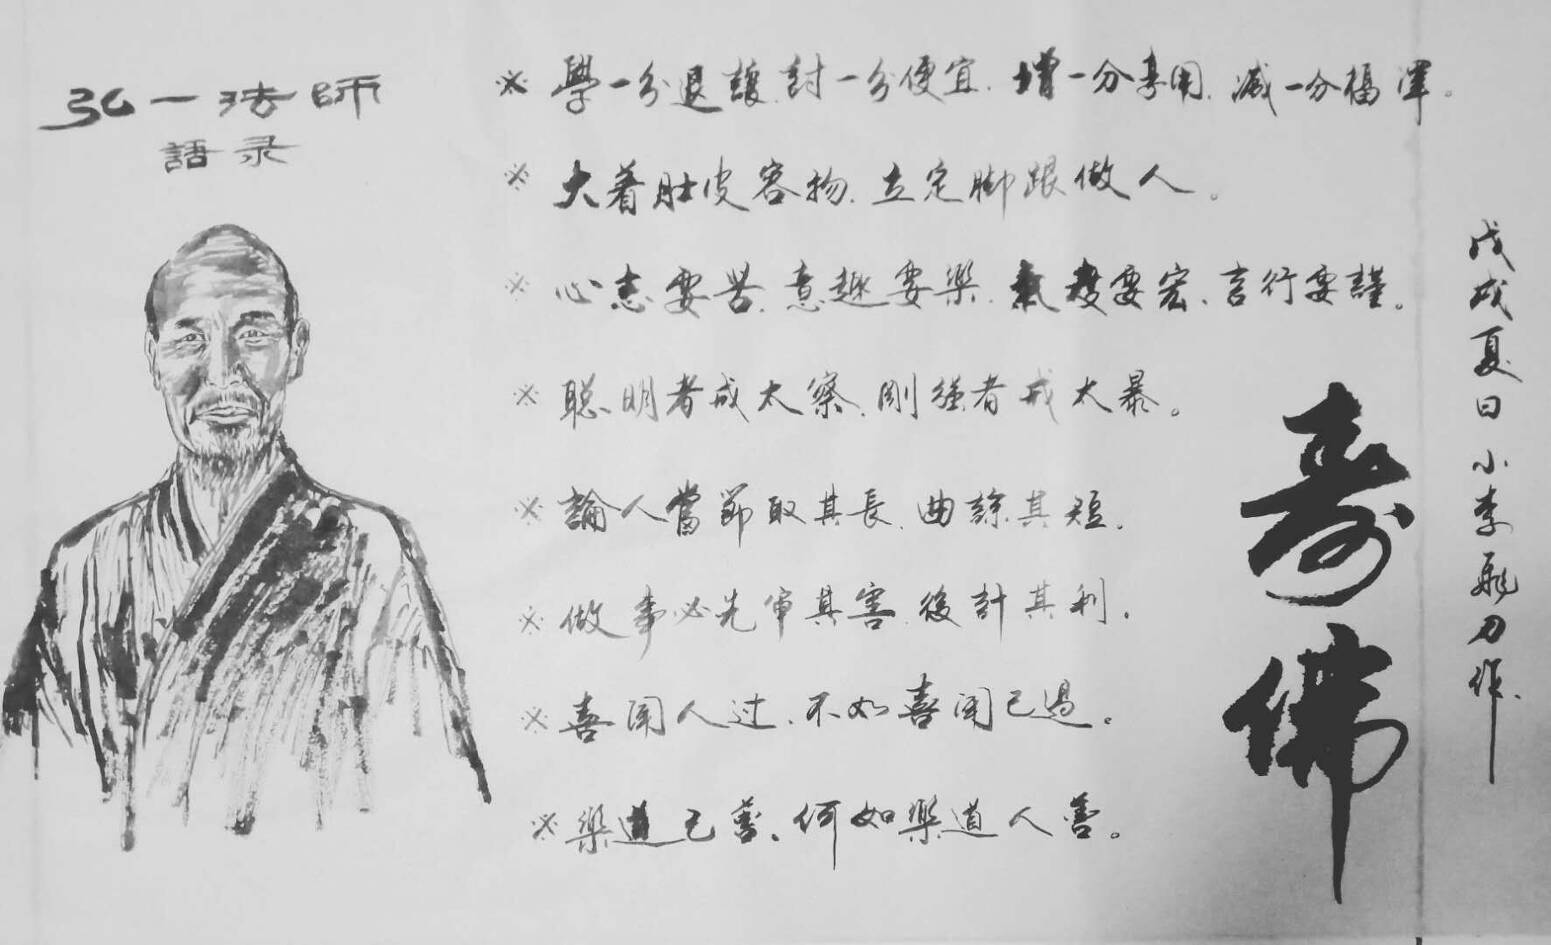 弘一法師
語录
※ 學一分退讓.討一分便宜.增一分享用.減一分福澤。
※ 大着肚皮容物.立定脚跟做人。
※ 心志要苦.意趣要樂.氣度要宏.言行要謹。
※ 聪明者戒太察.剛强者戒太暴。
※ 論人當節取其長.曲諒其短.
※ 做事必先审其害.後計其利.
※ 喜闻人过.不如喜闻己過。
※ 樂道己善、何如樂道人善。
壽佛
戊戌夏日小李飛刀作.